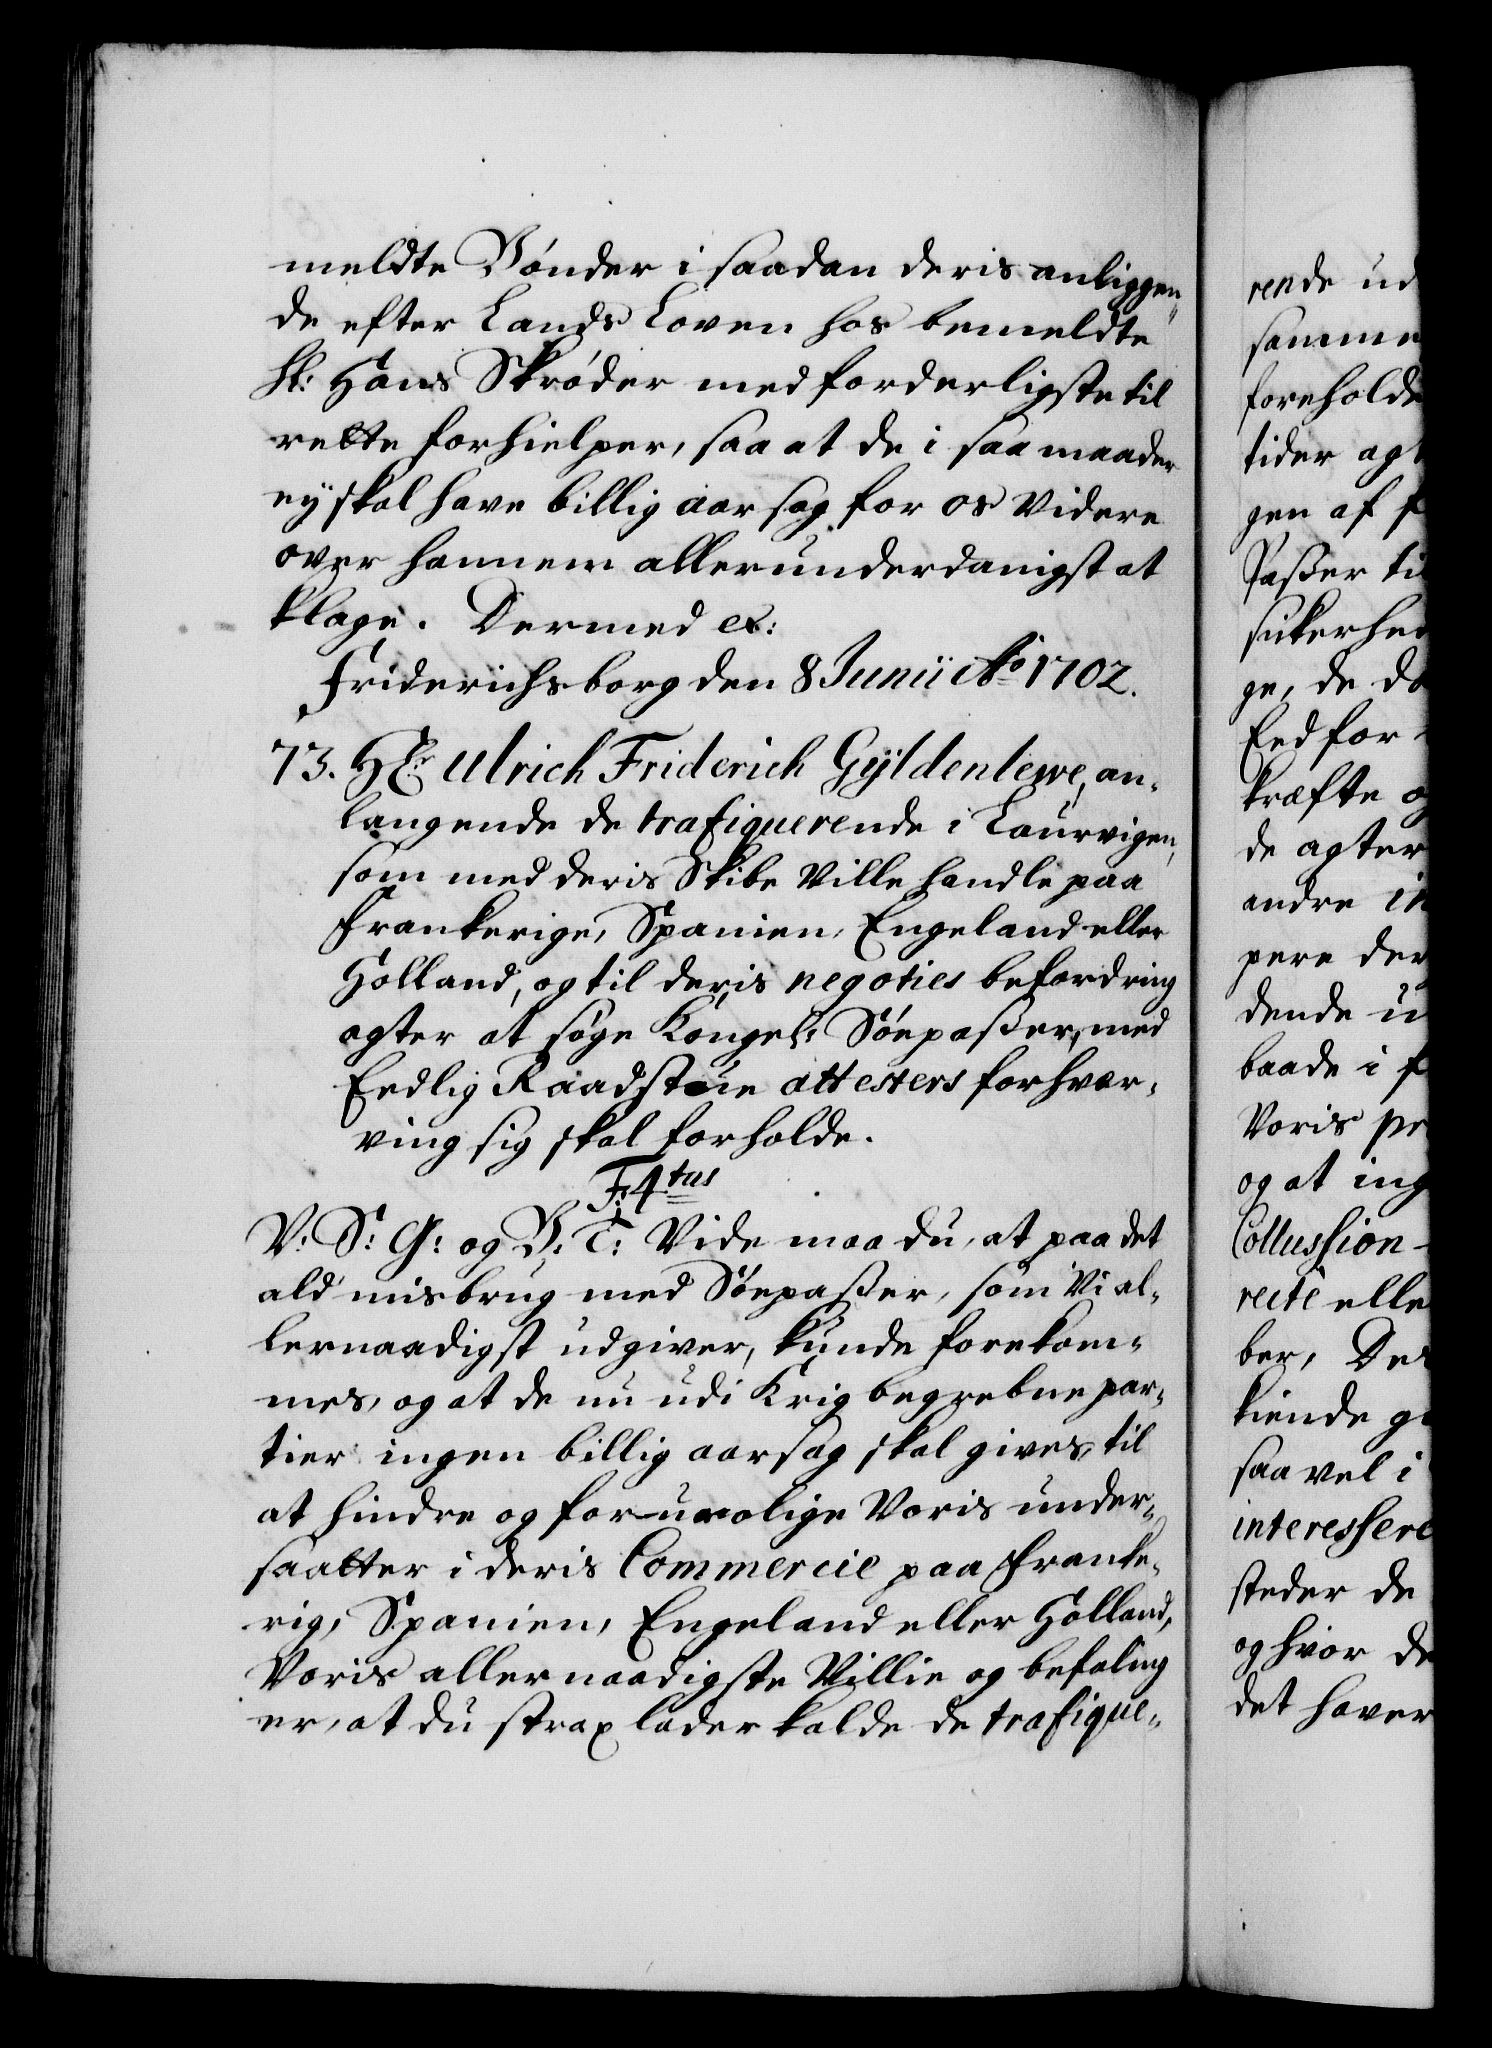 meldte Bønder i saadan deris anliggen-
de efter Lands Loven hos bemeldte
Hr: Hans Skrøder med forderligste til
rette forhielper, saa at de i saa maader
ey skal have billig aarsag for os videre
over hannem allerunderdanigst at
klage. Dermed ex:
Friderichsborg den 8 Junii Ao 1702.
73. Hr Ulrich Friderich Gÿldenlewe, an-
langende de trafiquerende i Laurvigen,
som med deris Skibe ville handle paa
Frankerige, Spanien, Engeland eller
Holland, og til deris negoties befordring
agter at søge Kongel: Søepasser, med
Eedlig Raadstue attesters forhver-
ving sig skal forholde.
F: 4tus
V: S: G: og B: T: Vide maa du, at paa det
ald misbrug med Søepasser, som Vi al-
lernaadigst udgiver, kunde forekom-
mes, og at de nu udi Krig begrebne par-
tier ingen billig aarsag skal gives til
at hindre og forurolige Voris under-
saatter i deris Commercie paa Franke-
rig, Spanien, Engeland eller Holland,
Voris allernaadigste Villie og befaling
er, at du strax lader kalde de trafique-
rende ud
samme
foreholde
tider agt
gen af f
Passer til
sikerhed
ge, de da
Eed for
kræfte og
de agter
andre in
pere der
dende u
baade i f
Voris pr
og at ing
Collussion
recte elle
ber, Des
kiende g
saavel i
interessere
steder de
og hvor de
det haver